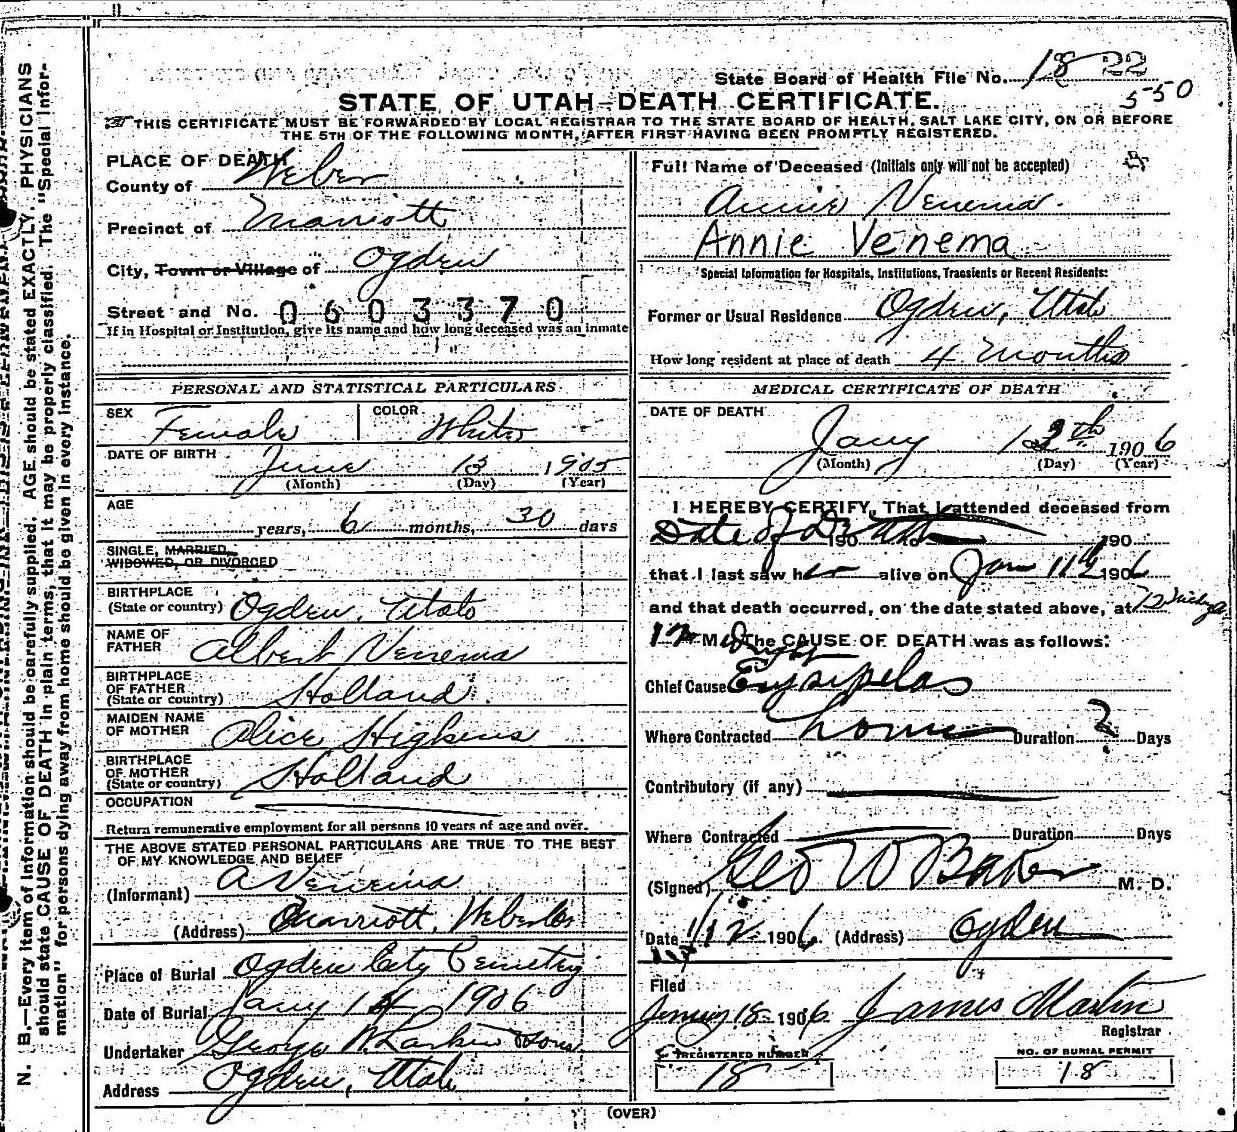 State Board of Health File No. 1822
550
STATE OF UTAH—DEATH CERTIFICATE.
THIS CERTIFICATE MUST BE FORWARDED BY LOCAL REGISTRAR TO THE STATE BOARD OF HEALTH, SALT LAKE CITY, ON OR BEFORE
THE 5TH OF THE FOLLOWING MONTH, AFTER FIRST HAVING BEEN PROMPTLY REGISTERED.
PLACE OF DEATH
County of Weber
Precinct of Marriott
City, Town or Village of Ogden
Street and No. 0603370
If in Hospital or Institution, give its name and how long deceased was an inmate
PERSONAL AND STATISTICAL PARTICULARS
SEX Female COLOR White
DATE OF BIRTH June 13 1905
(Month) (Day) (Year)
AGE
years, 6 months, 30 days
SINGLE, MARRIED,
WIDOWED, OR DIVORCED
BIRTHPLACE
(State or country) Ogden, Utah
NAME OF
FATHER Albert Venema
BIRTHPLACE
OF FATHER
(State or country) Holland
MAIDEN NAME
OF MOTHER Alice Higkens
BIRTHPLACE
OF MOTHER
(State or country) Holland
OCCUPATION
Return remunerative employment for all persons 10 years of age and over.
THE ABOVE STATED PERSONAL PARTICULARS ARE TRUE TO THE BEST
OF MY KNOWLEDGE AND BELIEF
(Informant) A Venema
(Address) Marriott, Weber Co
Place of Burial Ogden City Cemetry
Date of Burial Jany 14 1906
Undertaker George W. Larkin & Sons
Address Ogden, Utah
Full Name of Deceased (Initials only will not be accepted)
Annie Venema.
Annie Venema
Special Information for Hospitals, Institutions, Transients or Recent Residents:
Former or Usual Residence Ogden, Utah
How long resident at place of death 4 Months
MEDICAL CERTIFICATE OF DEATH
DATE OF DEATH
Jany 12th 1906
(Month) (Day) (Year)
I HEREBY CERTIFY, That I attended deceased from
Date of Death 190 190
that I last saw her alive on Jan 11th 1906
and that death occurred, on the date stated above, at 12
12 M. The CAUSE OF DEATH was as follows:
Chief Cause Erysipelas
Where Contracted home Duration ? Days
Contributory (if any)
Where Contracted Duration Days
(Signed) Geo W Baker M. D.
Date 1/12 1906 (Address) Ogden
Filed
18 1906 James Martin
Registrar
REGISTERED NUMBER
18
NO. OF BURIAL PERMIT
18
(OVER)
N. B.—Every item of information should be carefully supplied. AGE should be stated EXACTLY. PHYSICIANS
should state CAUSE OF DEATH in plain terms, that it may be properly classified. The "Special Infor-
mation" for persons dying away from home should be given in every instance.